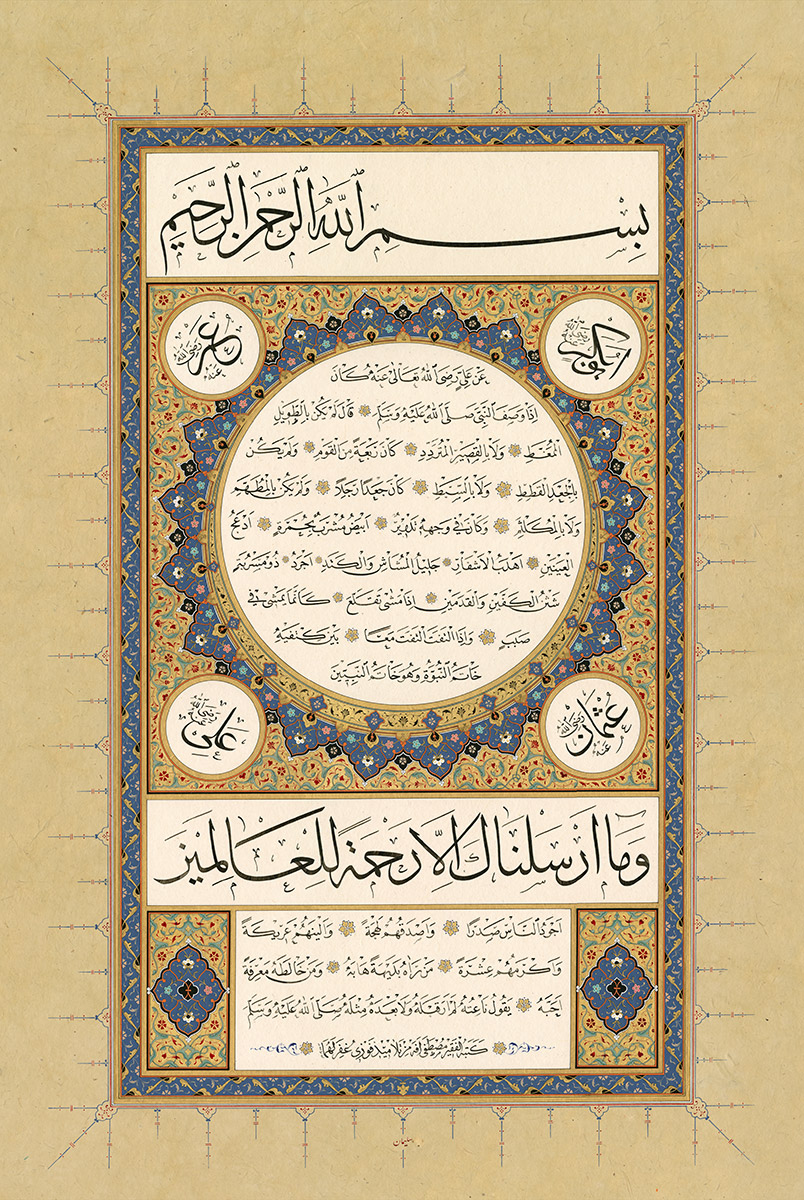 بِسْمِ اللَّهِ الرَّحْمٰنِ الرَّحِيمِ
أبو بكر رضي الله عنه
عمر رضي الله عنه
عن علي رضي الله تعالى عنه كان
إذا وصف النبي صلى الله عليه وسلم قال لم يكن بالطويل
الممغط ولا بالقصير المتردد كان ربعة من القوم ولم يكن
بالجعد القطط ولا بالسبط كان جعدا رجلا ولم يكن بالمطهم
ولا بالمكلثم وكان في وجهه تدوير أبيض مشرب بحمرة أدعج
العينين أهدب الأشفار جليل المشاش والكتد أجرد ذو مسربة
شثن الكفين والقدمين إذا مشى تقلع كأنما يمشي في
صبب وإذا التفت التفت معا بين كتفيه
خاتم النبوة وهو خاتم النبيين
عثمان رضي الله عنه
علي رضي الله عنه
وما أرسلناك إلا رحمة للعالمين
أجود الناس صدرا وأصدقهم لهجة وألينهم عريكة
وأكرمهم عشرة من رآه بديهة هابه ومن خالطه معرفة
أحبه يقول ناعته لم أر قبله ولا بعده مثله صلى الله عليه وسلم
كتبه الفقير مصطفى من تلاميذ فوزي غفر لهما
سليمان